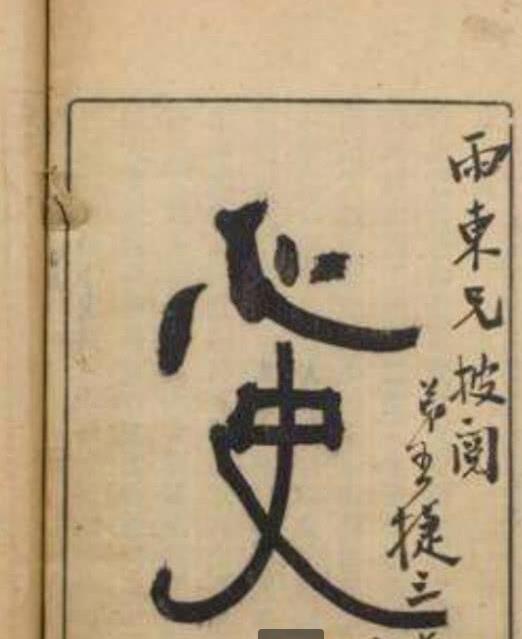 雨東兄披閱
弟王捷三
心史